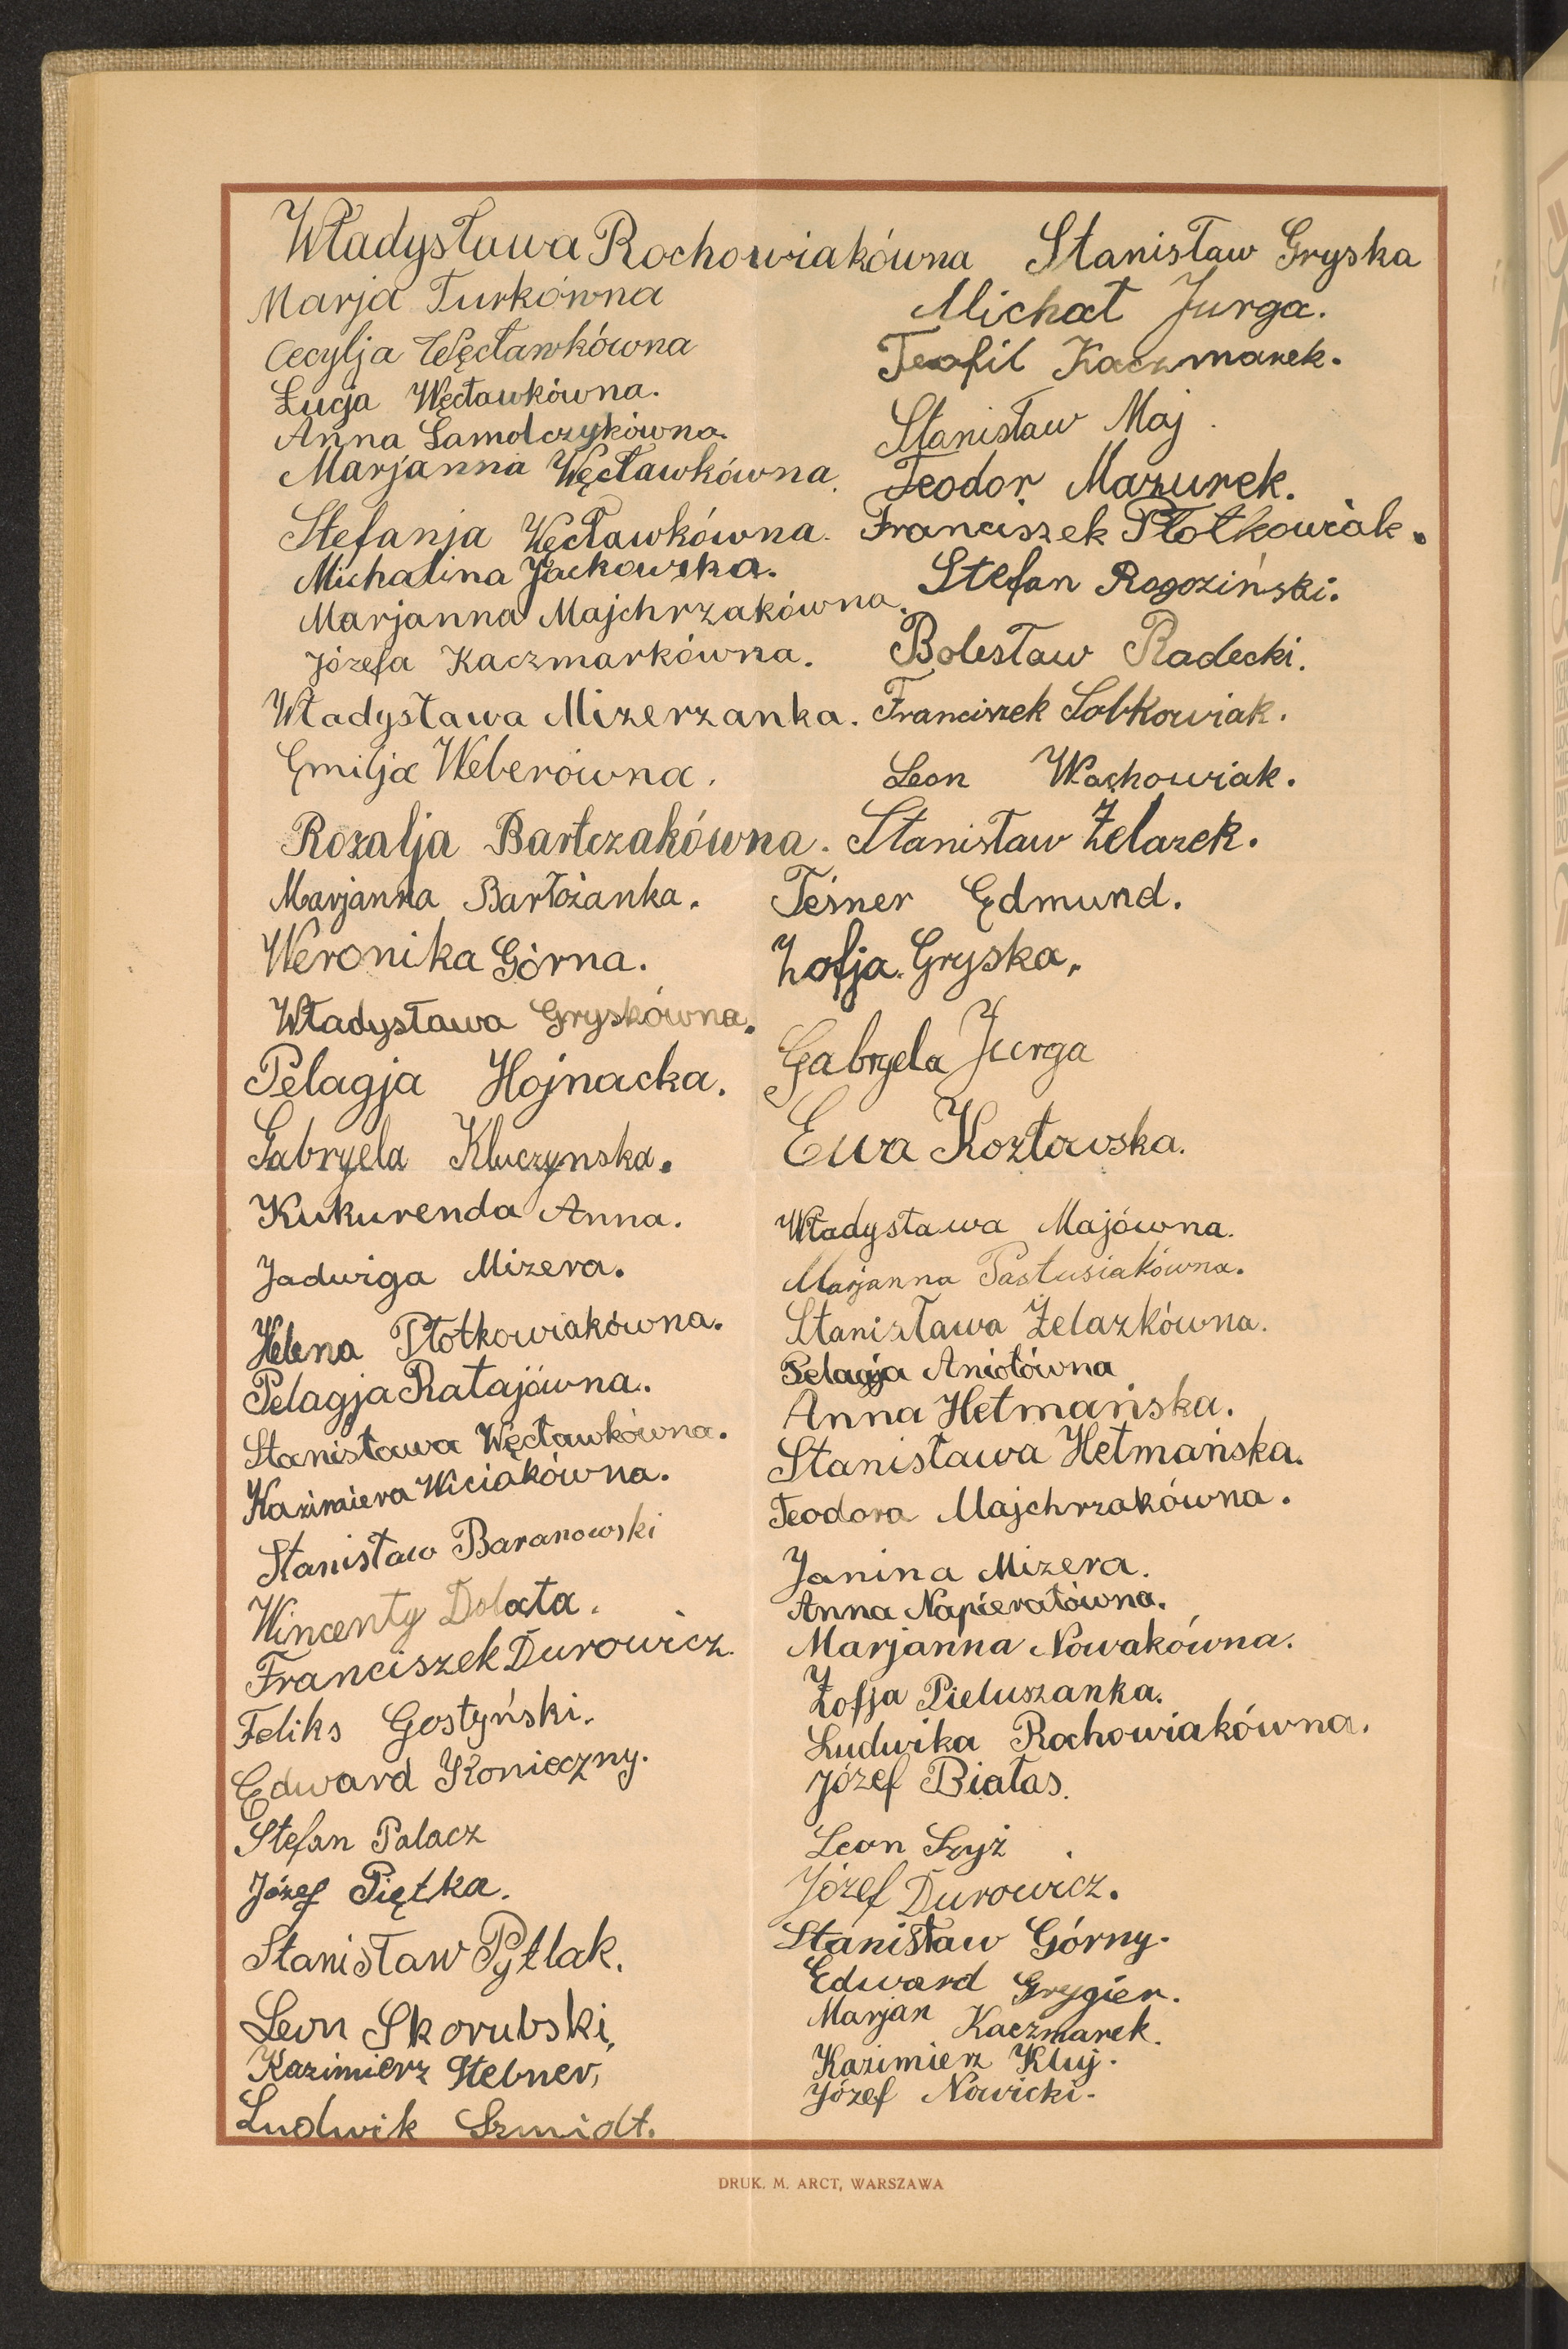 Władysława Rochowiakówna
Marja Turkówna
Cecylja Węcławkówna
Łucja Węcławkówna.
Anna Samolczykówna.
Marjanna Węcławkówna.
Stefanja Węcławkówna.
Michalina Jackowska.
Marjanna Majchrzakówna.
Józefa Kaczmarkówna.
Władysława Mizerzanka.
Emilja Weberówna.
Rozalja Bartczakówna.
Marjanna Bartożanka.
Weronika Górna.
Władysława Gryskówna.
Pelagja Hojnacka.
Gabryela Kluczynska.
Kukurenda Anna.
Jadwiga Mizera.
Helena Płotkowiakówna.
Pelagja Ratajówna.
Stanisława Węcławkówna.
Kazimiera Wiciakówna.
Stanisław Baranowski
Wincenty Dolata.
Franciszek Durowicz.
Feliks Gostyński.
Edward Konieczny.
Stefan Palacz
Józef Piętka.
Stanisław Pytlak.
Leon Skorubski,
Kazimierz Stebner,
Ludwik Szmidt.
Stanisław Gryska
Michał Jurga.
Teofil Kaczmarek.
Stanisław Maj.
Teodor Mazurek.
Franciszek Płotkowiak.
Stefan Rogoziński.
Bolesław Radecki.
Franciszek Sobkowiak.
Leon Wachowiak.
Stanisław Żelazek.
Teśner Edmund.
Zofja Gryska.
Gabryela Jurga
Ewa Kozłowska.
Władysława Majówna.
Marjanna Pastusiakówna.
Stanisława Żelazkówna.
Pelagja Aniołówna
Anna Hetmańska.
Stanisława Hetmańska.
Teodora Majchrzakówna.
Janina Mizera.
Anna Napierałówna.
Marjanna Nowakówna.
Zofja Pieluszanka.
Ludwika Rochowiakówna.
Józef Białas.
Leon
Józef Durowicz.
Stanisław Górny.
Edward Grygier.
Marjan Kaczmarek.
Kazimierz Kluj.
Józef Nowicki.
DRUK. M. ARCT, WARSZAWA